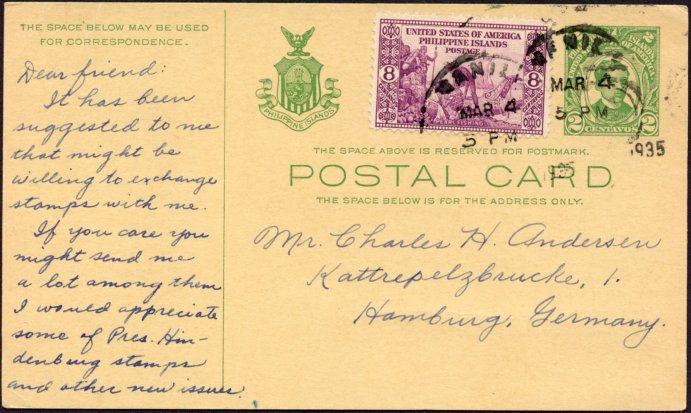 THE SPACE BELOW MAY BE USED
FOR CORRESPONDENCE.
Dear friend:
It has been
suggested to me
that might be
willing to exchange
stamps with me.
If you care you
might send me
a lot among them
I would appreciate
some of Pres. Hin-
denburg stamps
and other new issues.
PHILIPPINE ISLANDS
UNITED STATES OF AMERICA
PHILIPPINE ISLANDS
POSTAGE
8 8
MANILA
MAR 4
5 PM
1935
MANILA
MAR 4
5 PM
1935
2 CENTAVOS 2
THE SPACE ABOVE IS RESERVED FOR POSTMARK.
POSTAL CARD
THE SPACE BELOW IS FOR THE ADDRESS ONLY.
Mr. Charles H. Andersen
Kattrepelzbrucke, 1.
Hamburg, Germany.